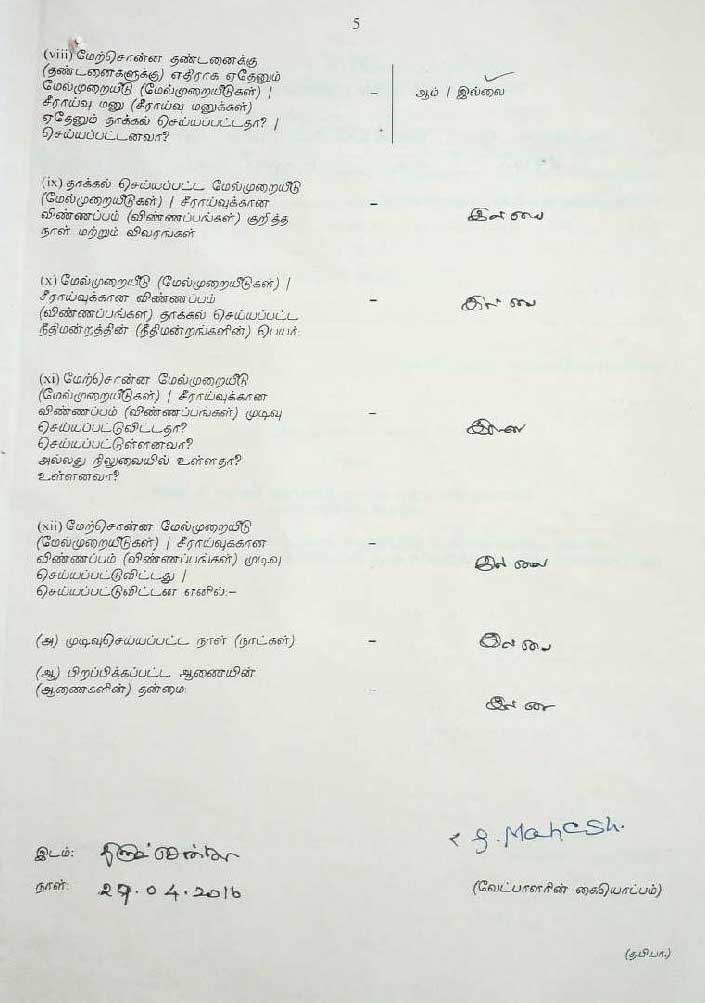 5
(viii) மேற்சொன்ன தண்டனைக்கு
(தண்டனைகளுக்கு) எதிராக ஏதேனும்
மேல்முறையீடு (மேல்முறையீடுகள்) |
சீராய்வு மனு (சீராய்வு மனுக்கள்)
ஏதேனும் தாக்கல் செய்யப்பட்டதா? |
செய்யப்பட்டனவா?
- ஆம் / இல்லை
(ix) தாக்கல் செய்யப்பட்ட மேல்முறையீடு
(மேல்முறையீடுகள்) | சீராய்வுக்கான
விண்ணப்பம் (விண்ணப்பங்கள்) குறித்த
நாள் மற்றும் விவரங்கள்
- இல்லை
(x) மேல்முறையீடு (மேல்முறையீடுகள்) |
சீராய்வுக்கான விண்ணப்பம்
(விண்ணப்பங்கள) தாக்கல் செய்யப்பட்ட
நீதிமன்றத்தின் (நீதிமன்றங்களின்) பெயர்:
- இல்லை
(xi) மேற்சொன்ன மேல்முறையீடு
(மேல்முறையீடுகள்) | சீராய்வுக்கான
விண்ணப்பம் (விண்ணப்பங்கள்) முடிவு
செய்யப்பட்டுவிட்டதா?
செய்யப்பட்டுள்ளனவா?
அல்லது நிலுவையில் உள்ளதா?
உள்ளனவா?
- இல்லை
(xii) மேற்சொன்ன மேல்முறையீடு
(மேல்முறையீடுகள்) | சீராய்வுககான
விண்ணப்பம் (விண்ணப்பங்கள்) முடிவு
செய்யப்பட்டுவிட்டது |
செய்யப்பட்டுவிட்டன எனில்:-
- இல்லை
(அ) முடிவுசெய்யப்பட்ட நாள் (நாட்கள்) - இல்லை
(ஆ) பிறப்பிக்கப்பட்ட ஆணையின்
(ஆணைகளின்) தன்மை:
இல்லை
இடம்:
நாள்: 27.04.2016
g. Mahesh.
(வேட்பாளரின் கையொப்பம்)
(தபிபா.)